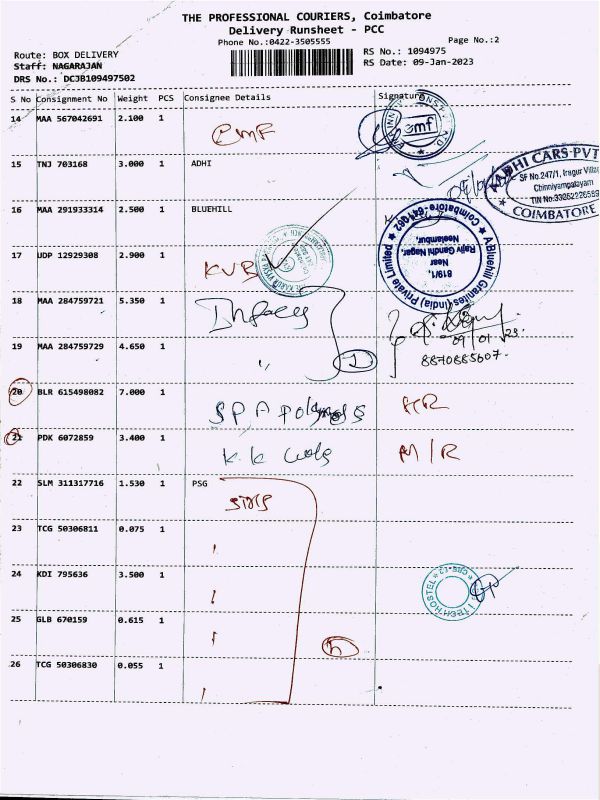 THE PROFESSIONAL COURIERS, Coimbatore
Delivery Runsheet - PCC
Phone No.:0422-3505555
Page No.:2
Route: BOX DELIVERY
RS No.: 1094975
Staff: NAGARAJAN
RS Date: 09-Jan-2023
DRS No.: DCJB109497502
S No Consignment No Weight PCS Consignee Details Signature
14 MAA 567042691 2.100 1 emf
15 TNJ 703168 3.000 1 ADHI
ADHI CARS PVT
SF No.247/1, Irugur Villag
Chinniyampalayam
COIMBATORE
16 MAA 291933314 2.500 1 BLUEHILL
A Bluehill Granites(India) Private Limited
819/1,
Near
Rajiv Gandhi Nagar,
Neelambur,
17 UDP 12929308 2.900 1 KVB
18 MAA 284759721 5.350 1
19 MAA 284759729 4.650 1
09/01/23
8870885607.
20 BLR 615498082 7.000 1 SPA
21 PDK 6072859 3.400 1 K.K
22 SLM 311317716 1.530 1 PSG
23 TCG 50306811 0.075 1
24 KDI 795636 3.500 1
25 GLB 670159 0.615 1
26 TCG 50306830 0.055 1